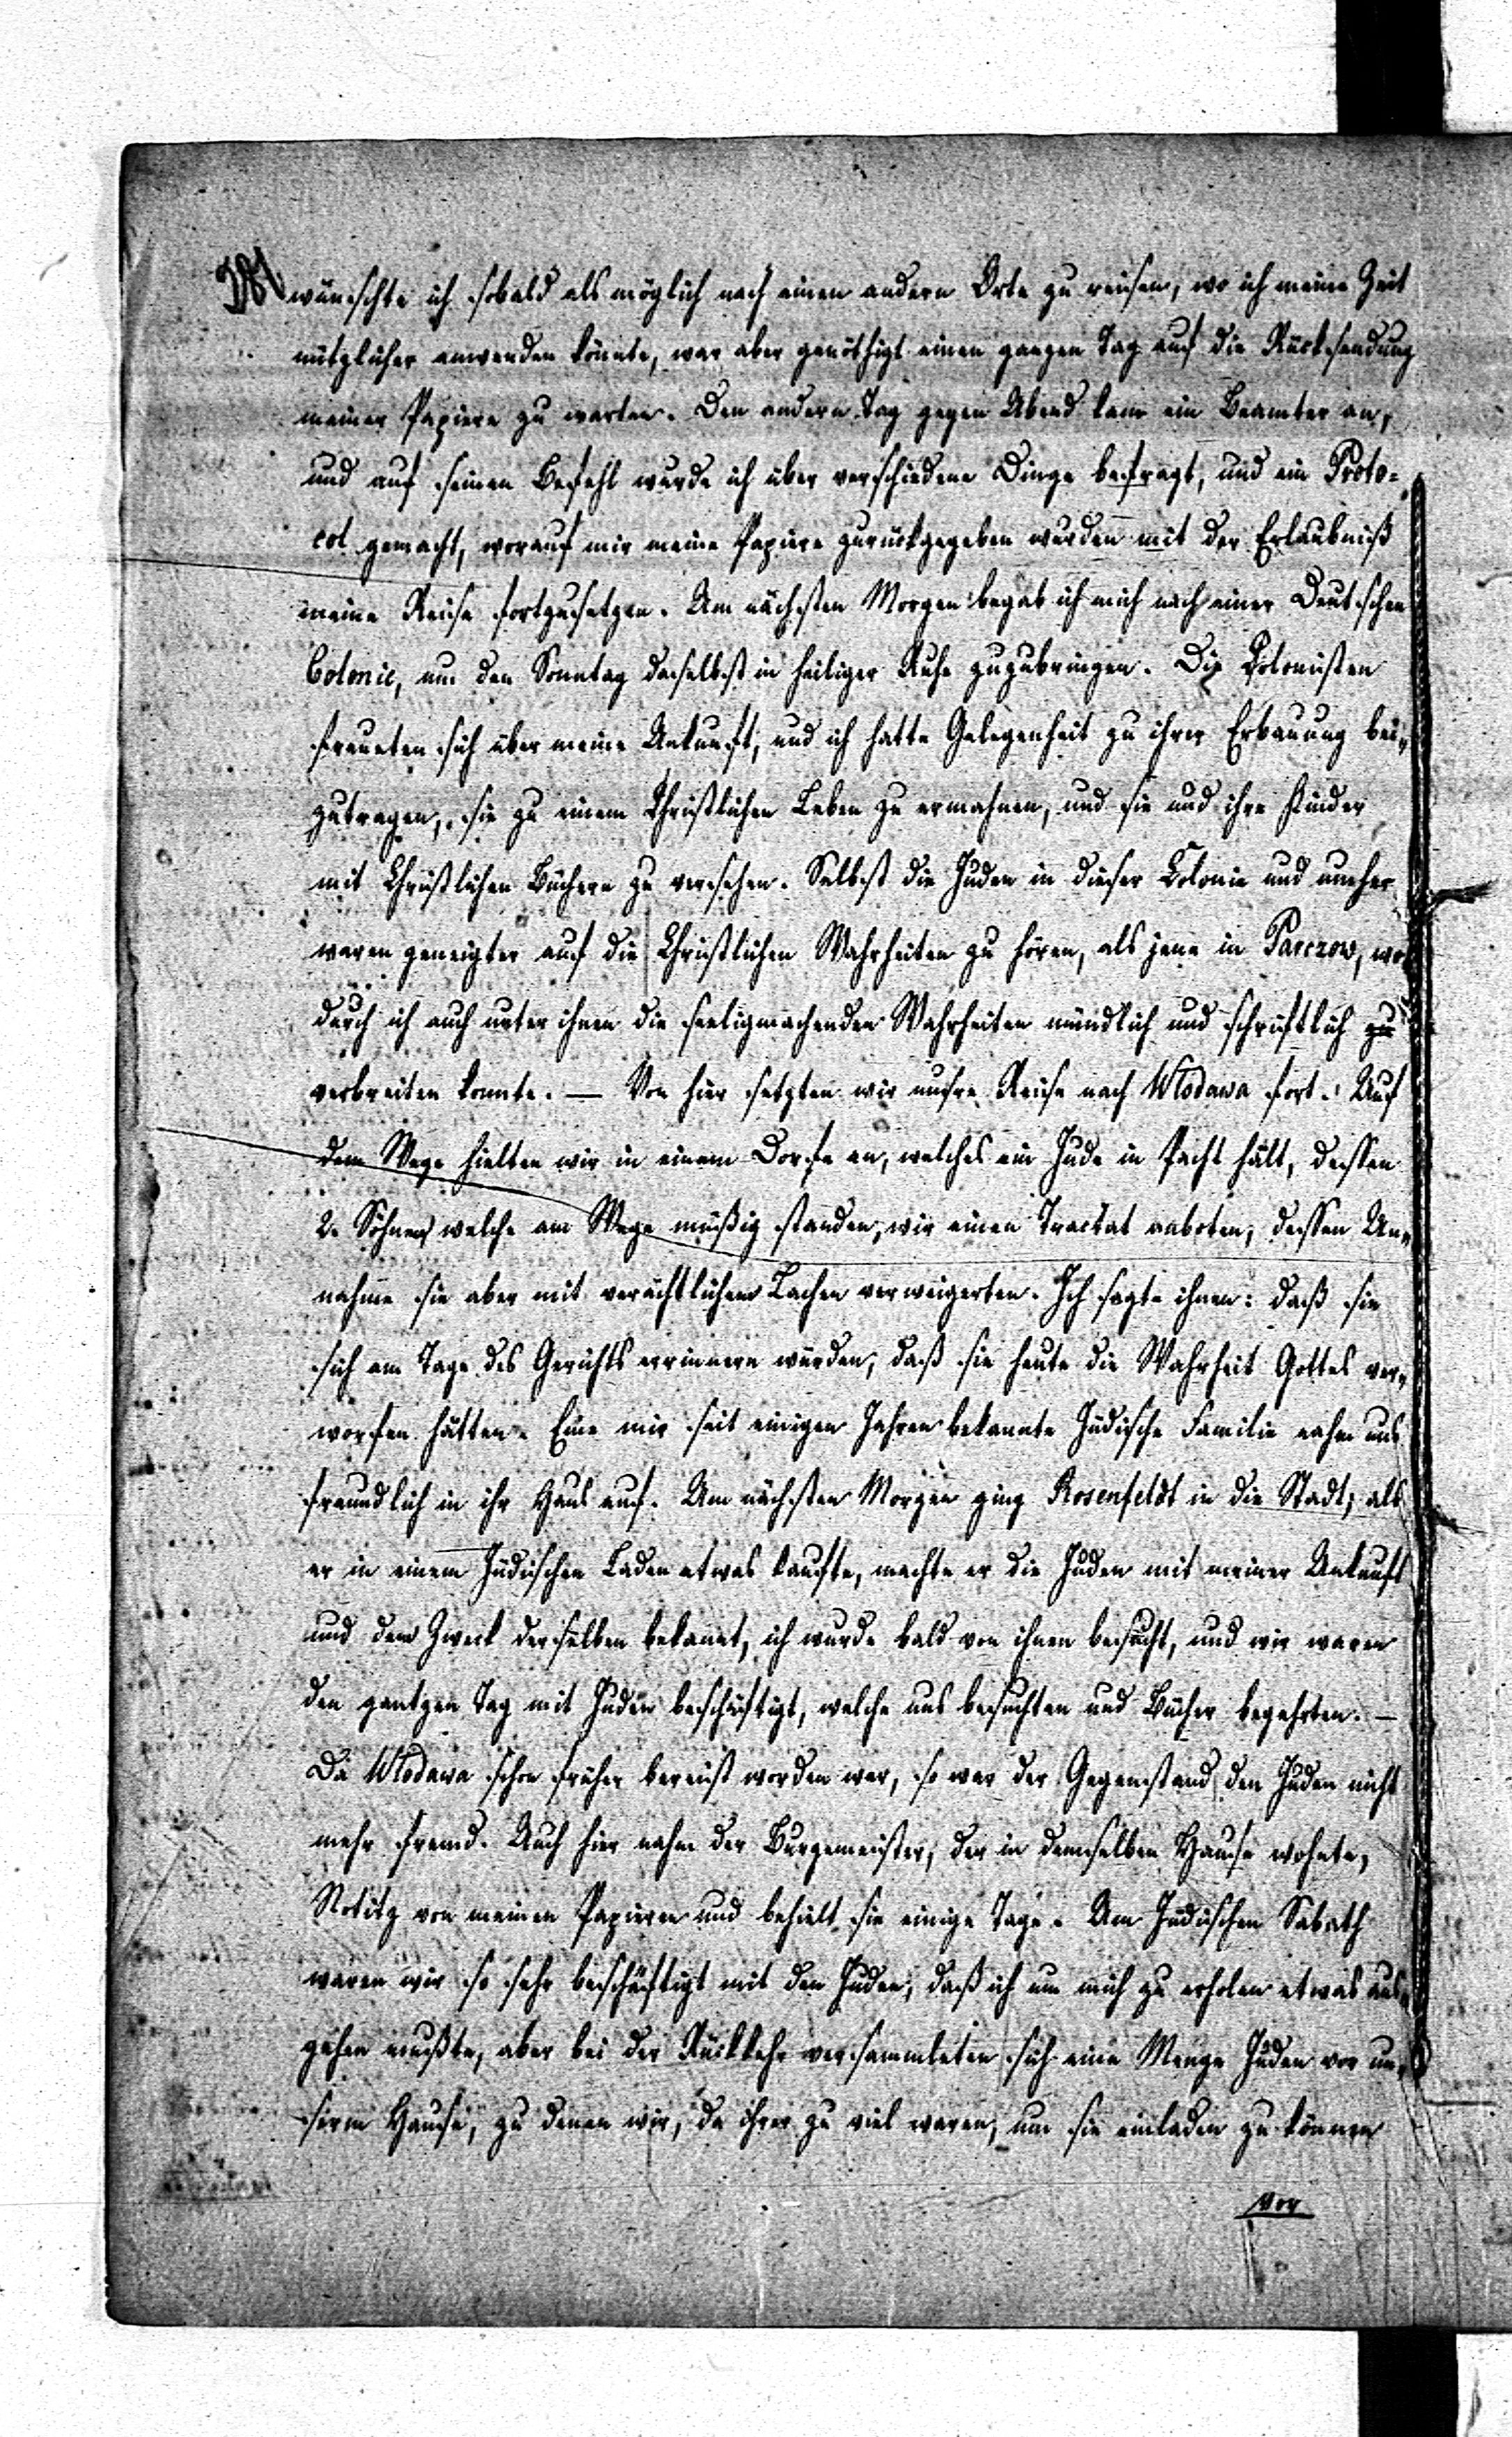 wünschte ich sobald als möglich nach einen andern Orte zu reisen, wo ich meine Zeit
nützlicher anwenden könnte, war aber genöthigt einen ganzen Tag auf die Rücksendung
meiner Papiere zu warten. Den andern Tag gegen Abend kam ein Beamter an,
und auf seinen Befehl wurde ich über verschiedene Dinge befragt, und ein Proto=
col gemacht, worauf mir meine Papiere zurückgegeben wurden mit der Erlaubniß
meine Reise fortzusetzen. Am nächsten Morgen begab ich mich nach einer Deutschen
Colonie, um den Sonntag daselbst in heiliger Ruhe zuzubringen. Die Colonisten
freueten sich über meine Ankunft, und ich hatte Gelegenheit zu ihrer Erbauung bei„
zutragen, sie zu einem Christlichen Leben zu ermahnen, und sie und ihre Kinder
mit Christlichen Büchern zu versehen. Selbst die Juden in dieser Colonie und umher
waren geneigter auf die Christlichen Wahrheiten zu hören, als jene in Parczow, wo
durch ich auch unter ihnen die seeligmachenden Wahrheiten mündlich und schriftlich zu
verbreiten konnte. — Von hier setzten wir unsre Reise nach Wlodawa fort. Auf
dem Wege hielten wir in einem Dorfe an, welches ein Jude in Pacht hält, dessen
2. Söhnen welche am Wege müßig standen, wir einen Tractat anboten, dessen An„
nahme sie aber mit verächtlichem Lachen verweigerten. Ich sagte ihnen: daß sie
sich am Tage des Gerichts errinnern würden, daß sie heute die Wahrheit Gottes ver„
worfen hätten. Eine mir seit einigen Jahren bekannte Jüdische Familie nahm uns
freundlich in ihr Haus auf. Am nächsten Morgen ging Rosenfeldt in die Stadt, als
er in einem Jüdischen Laden etwas kaufte, machte er die Juden mit meiner Ankunft
und dem Zweck derselben bekannt, ich wurde bald von ihnen besucht, und wir waren
den gantzen Tag mit Juden beschäftigt, welche uns besuchten und Bücher begehrten. —
Da Wlodawa schon früher bereist worden war, so war der Gegenstand den Juden nicht
mehr fremd. Auch hier nahm der Burgemeister, der in demselben Hause wohnte,
Notitz von meinen Papieren und behielt sie einige Tage. Am Jüdischen Sabath
waren wir so sehr beschäftigt mit den Juden, daß ich um mich zu erholen etwas aus„
gehen mußte, aber bei der Rückkehr versammleten sich eine Menge Juden vor un„
serm Hause, zu denen wir, da ihrer zu viel waren, um sie einladen zu können
vor